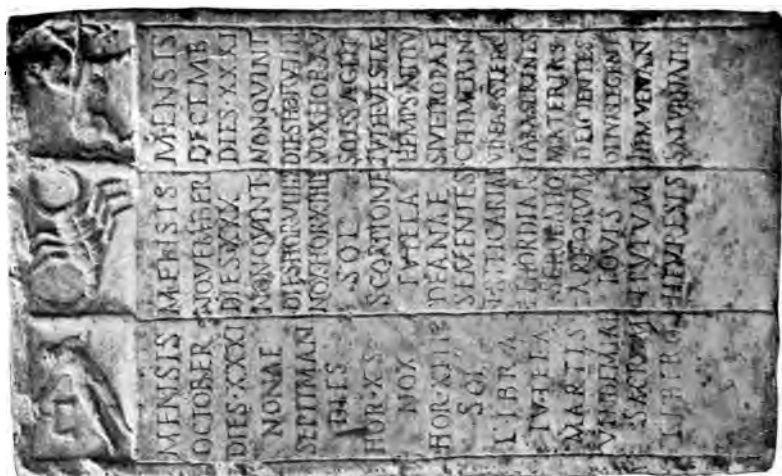 MENSIS
OCTOBER
DIES·XXXI
NONAE
SEPTIMAN
DIES
HOR·X S
NOX
HOR·XIII
SOL
LIBRA
TVTELA
MARTIS
VINDEMIAE
SACRVM
LIBERO
MENSIS
NOVEMBER
DIES XXX
NON QVINT
DIES HOR VIIII
NOX HOR XIIII
SOL
SCORPIONE
TVTELA
DEANAE
SEMENTES
TRITICARIAE
ET HORDIAR
SCROBATIO
ARBORVM
IOVIS
HEVRESIS
MENSIS
DECEMB
DIES·XXXI
NON QVINT
DIES HOR VIIII
NOX HOR XV
SOL SAGITT
TVTELA VESTAE
HIEMPS INITIV
SIVE TROPAE
CHIMERIN
VINEAS STERC
FABA SERENTES
MATERIAS
DEICIENTES
OLIVA LEGENT
ITEM VENAN
SATVRNALIA